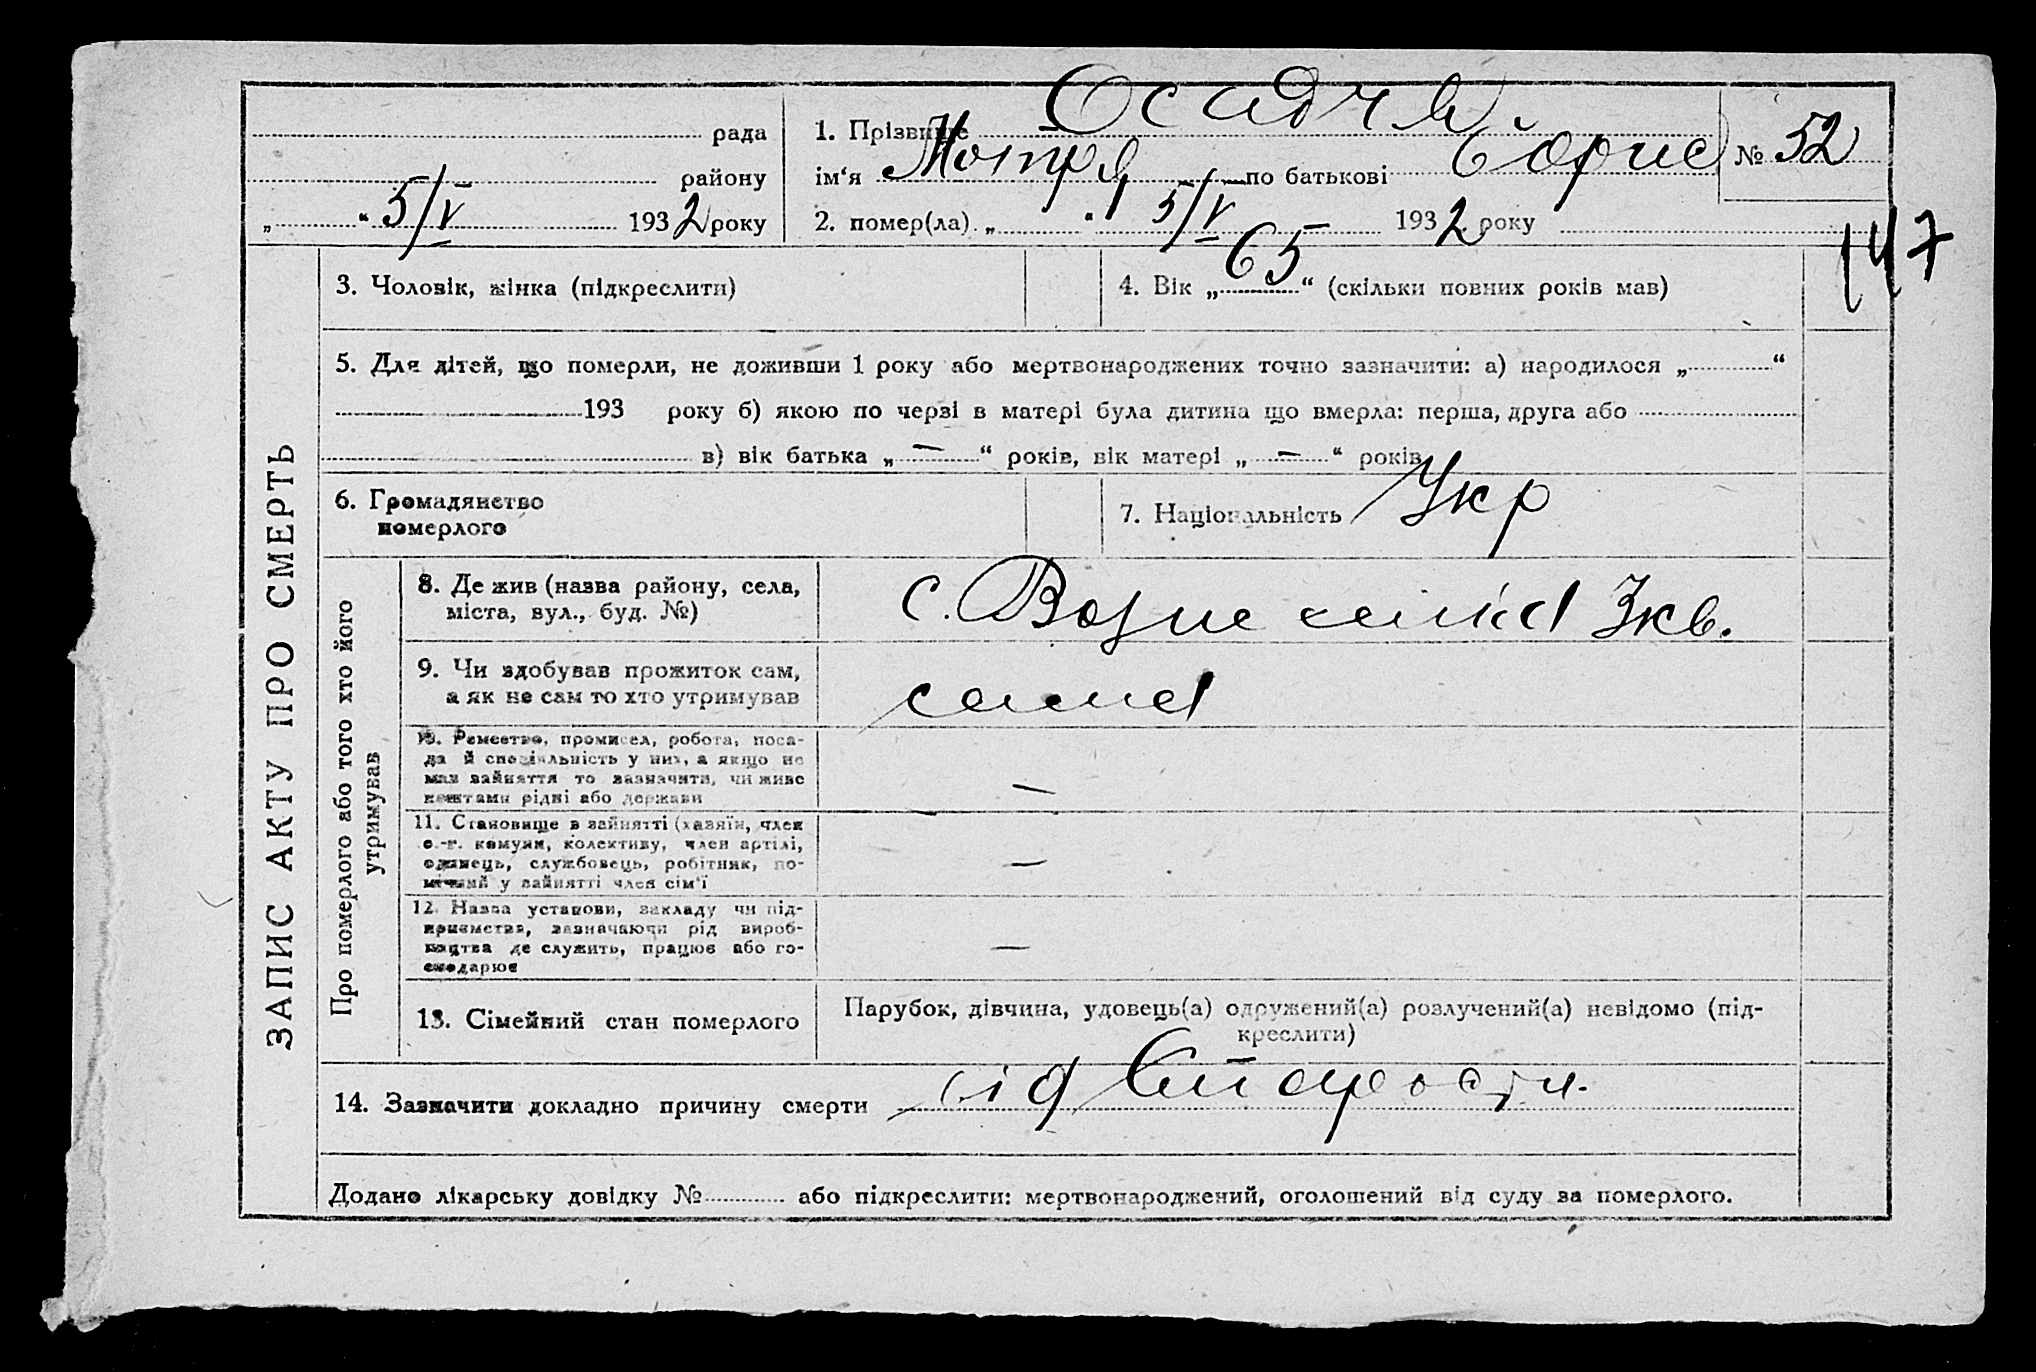 рада
району
„ “ 5/V 1932 року
1. Прізвище Осадча
ім‘я Мотря по батькові Борис
№ 52
2. помер(ла) „ “ 5/V 1932 року
147
3. Чоловік, жінка (підкреслити)
4. Вік „ 65 “ (скільки повних років мав)
5. Для дітей, що померли, не доживши 1 року або мертвонароджених точно зазначити: а) народилося „ “
193 року б) якою по черзі в матері була дитина що вмерла: перша, друга або
в) вік батька „ — “ років, вік матері „ — “ років
6. Громадянство
померлого
7. Національність Укр
ЗАПИС АКТУ ПРО СМЕРТЬ
Про померлого або того хто його
утримував
8. Де жив (назва району, села,
міста, вул., буд. №)
с.
9. Чи здобував прожиток сам,
а як не сам то хто утримував
сама
10. Ремество, промисел, робота, поса-
да й спеціяльність у них, а якщо не
мав зайняття то зазначити, чи живе
коштами рідні або держави
—
11. Становище в зайнятті (хазяїн, член
с.-г. комуни, колективу, член артілі,
одинець, службовець, робітник, по-
мічний у зайнятті член сім‘ї
—
12. Назва установи, закладу чи під-
приємства, зазначаючи рід вироб-
ництва де служить, працює або го-
сподарює
—
13. Сімейний стан померлого
Парубок, дівчина, удовець(а) одружений(а) розлучений(а) невідомо (під-
креслити)
14. Зазначити докладно причину смерти від старости.
Додано лікарську довідку № або підкреслити: мертвонароджений, оголошений від суду за померлого.